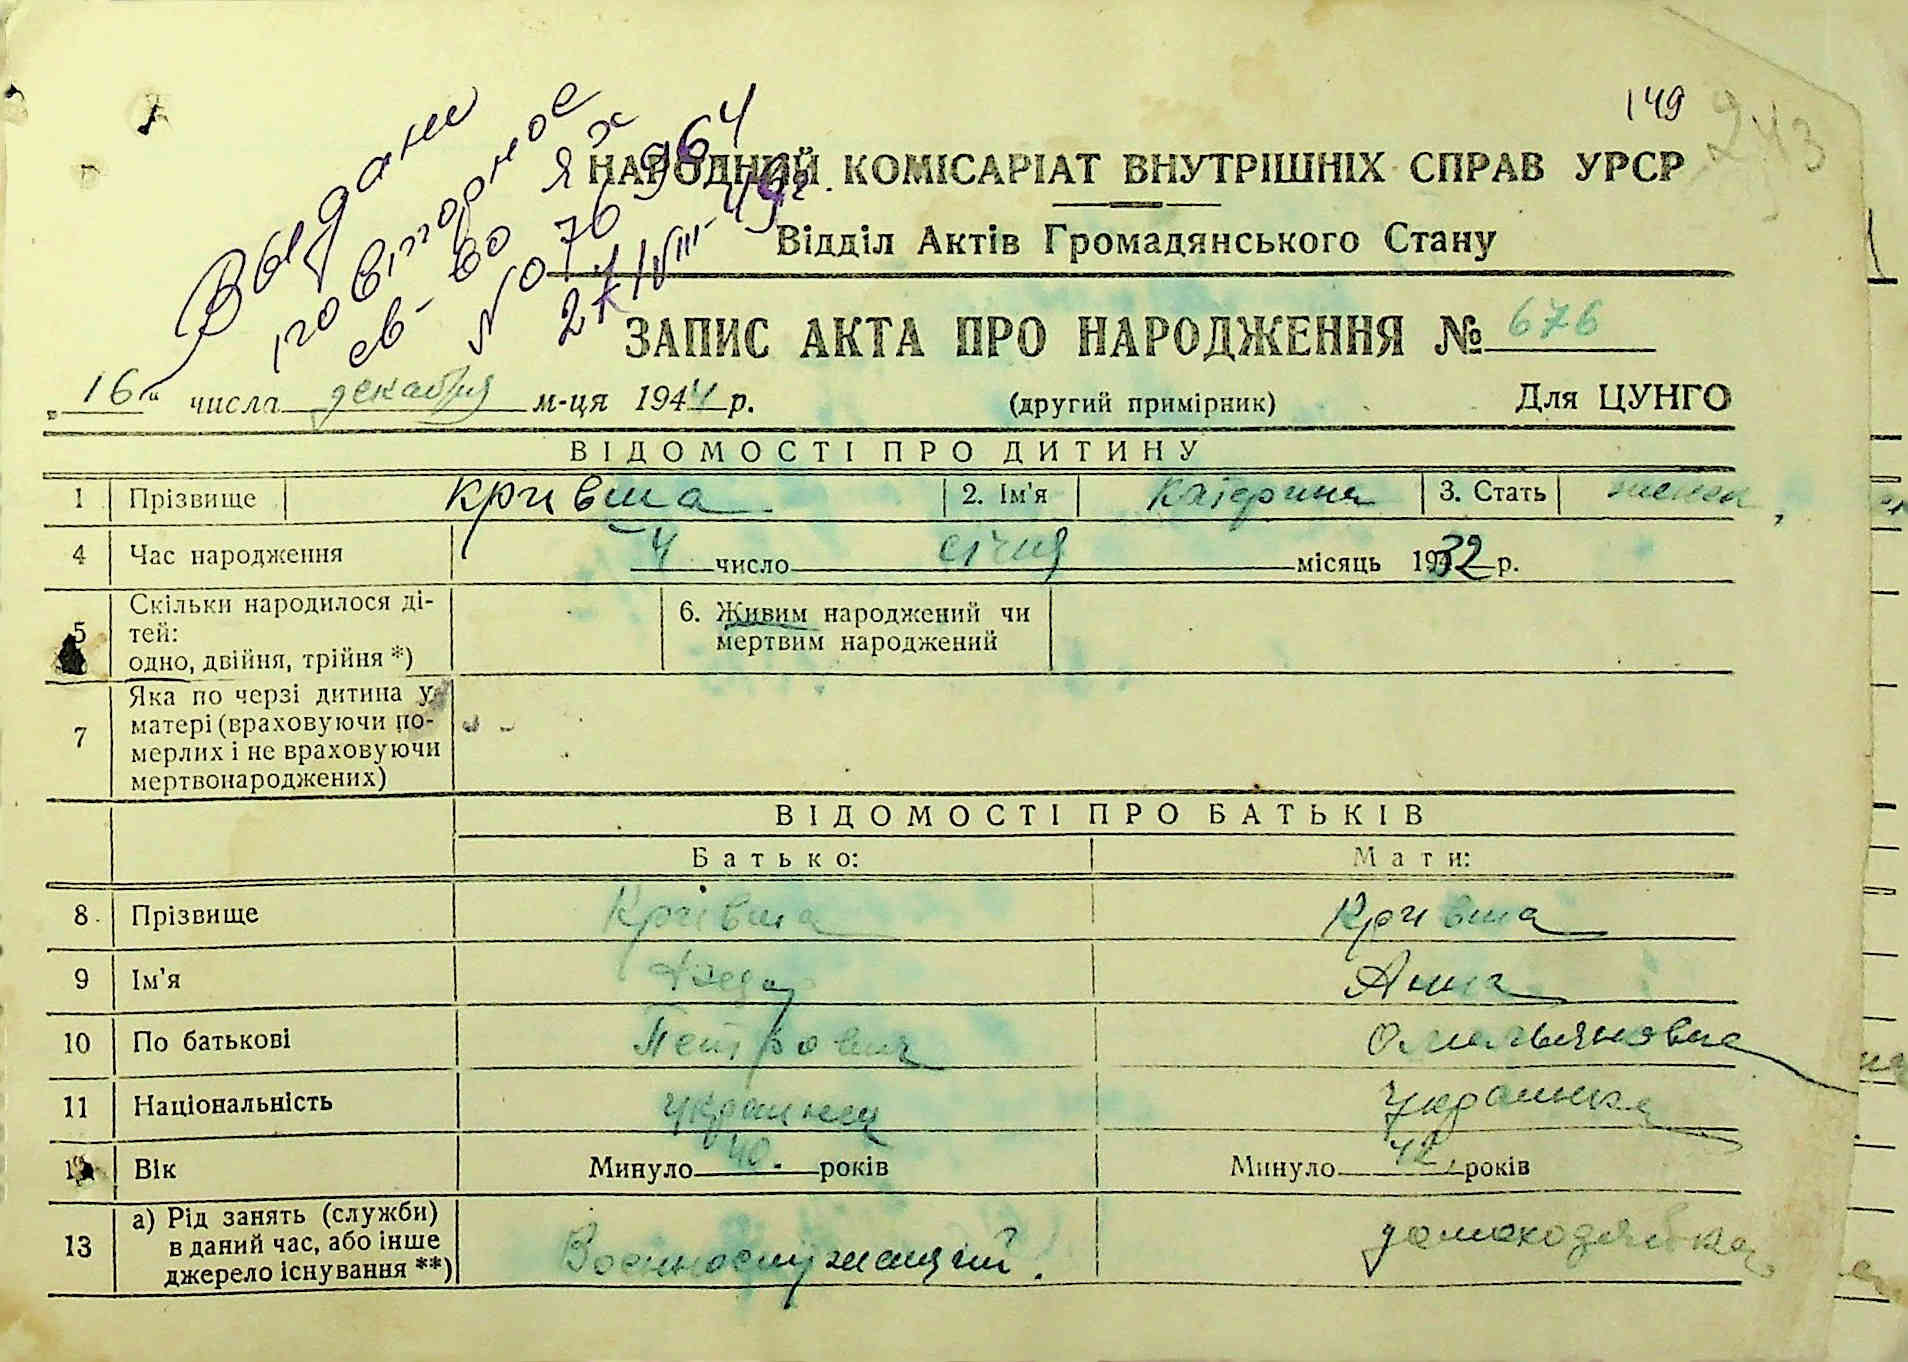 149 243
Выдано
повторное
св-во ЯЖ
№ 076964
27/VIII-49г.
НАРОДНИЙ КОМІСАРІАТ ВНУТРІШНІХ СПРАВ УРСР
Відділ Актів Громадянського Стану
ЗАПИС АКТА ПРО НАРОДЖЕННЯ № 676
„16“ числа декабря м-ця 1944 р. (другий примірник) Для ЦУНГО
ВІДОМОСТІ ПРО ДИТИНУ
1 Прізвище Кривша 2. Ім'я Катерина 3. Стать женск
4 Час народження 4 число січня місяць 1932 р.
5 Скільки народилося ді-
тей:
одно, двійня, трійня *)
6. Живим народжений чи
мертвим народжений
7 Яка по черзі дитина у
матері (враховуючи по-
мерлих і не враховуючи
мертвонароджених)
ВІДОМОСТІ ПРО БАТЬКІВ
Батько: Мати:
8 Прізвище Кривша Кривша
9 Ім'я Анна
10 По батькові Петрович Омельяновна
11 Національність українец українка
12 Вік Минуло 40 років Минуло 42 років
13 а) Рід занять (служби)
в даний час, або інше
джерело існування **)
Военнослужащий. домоходяйка